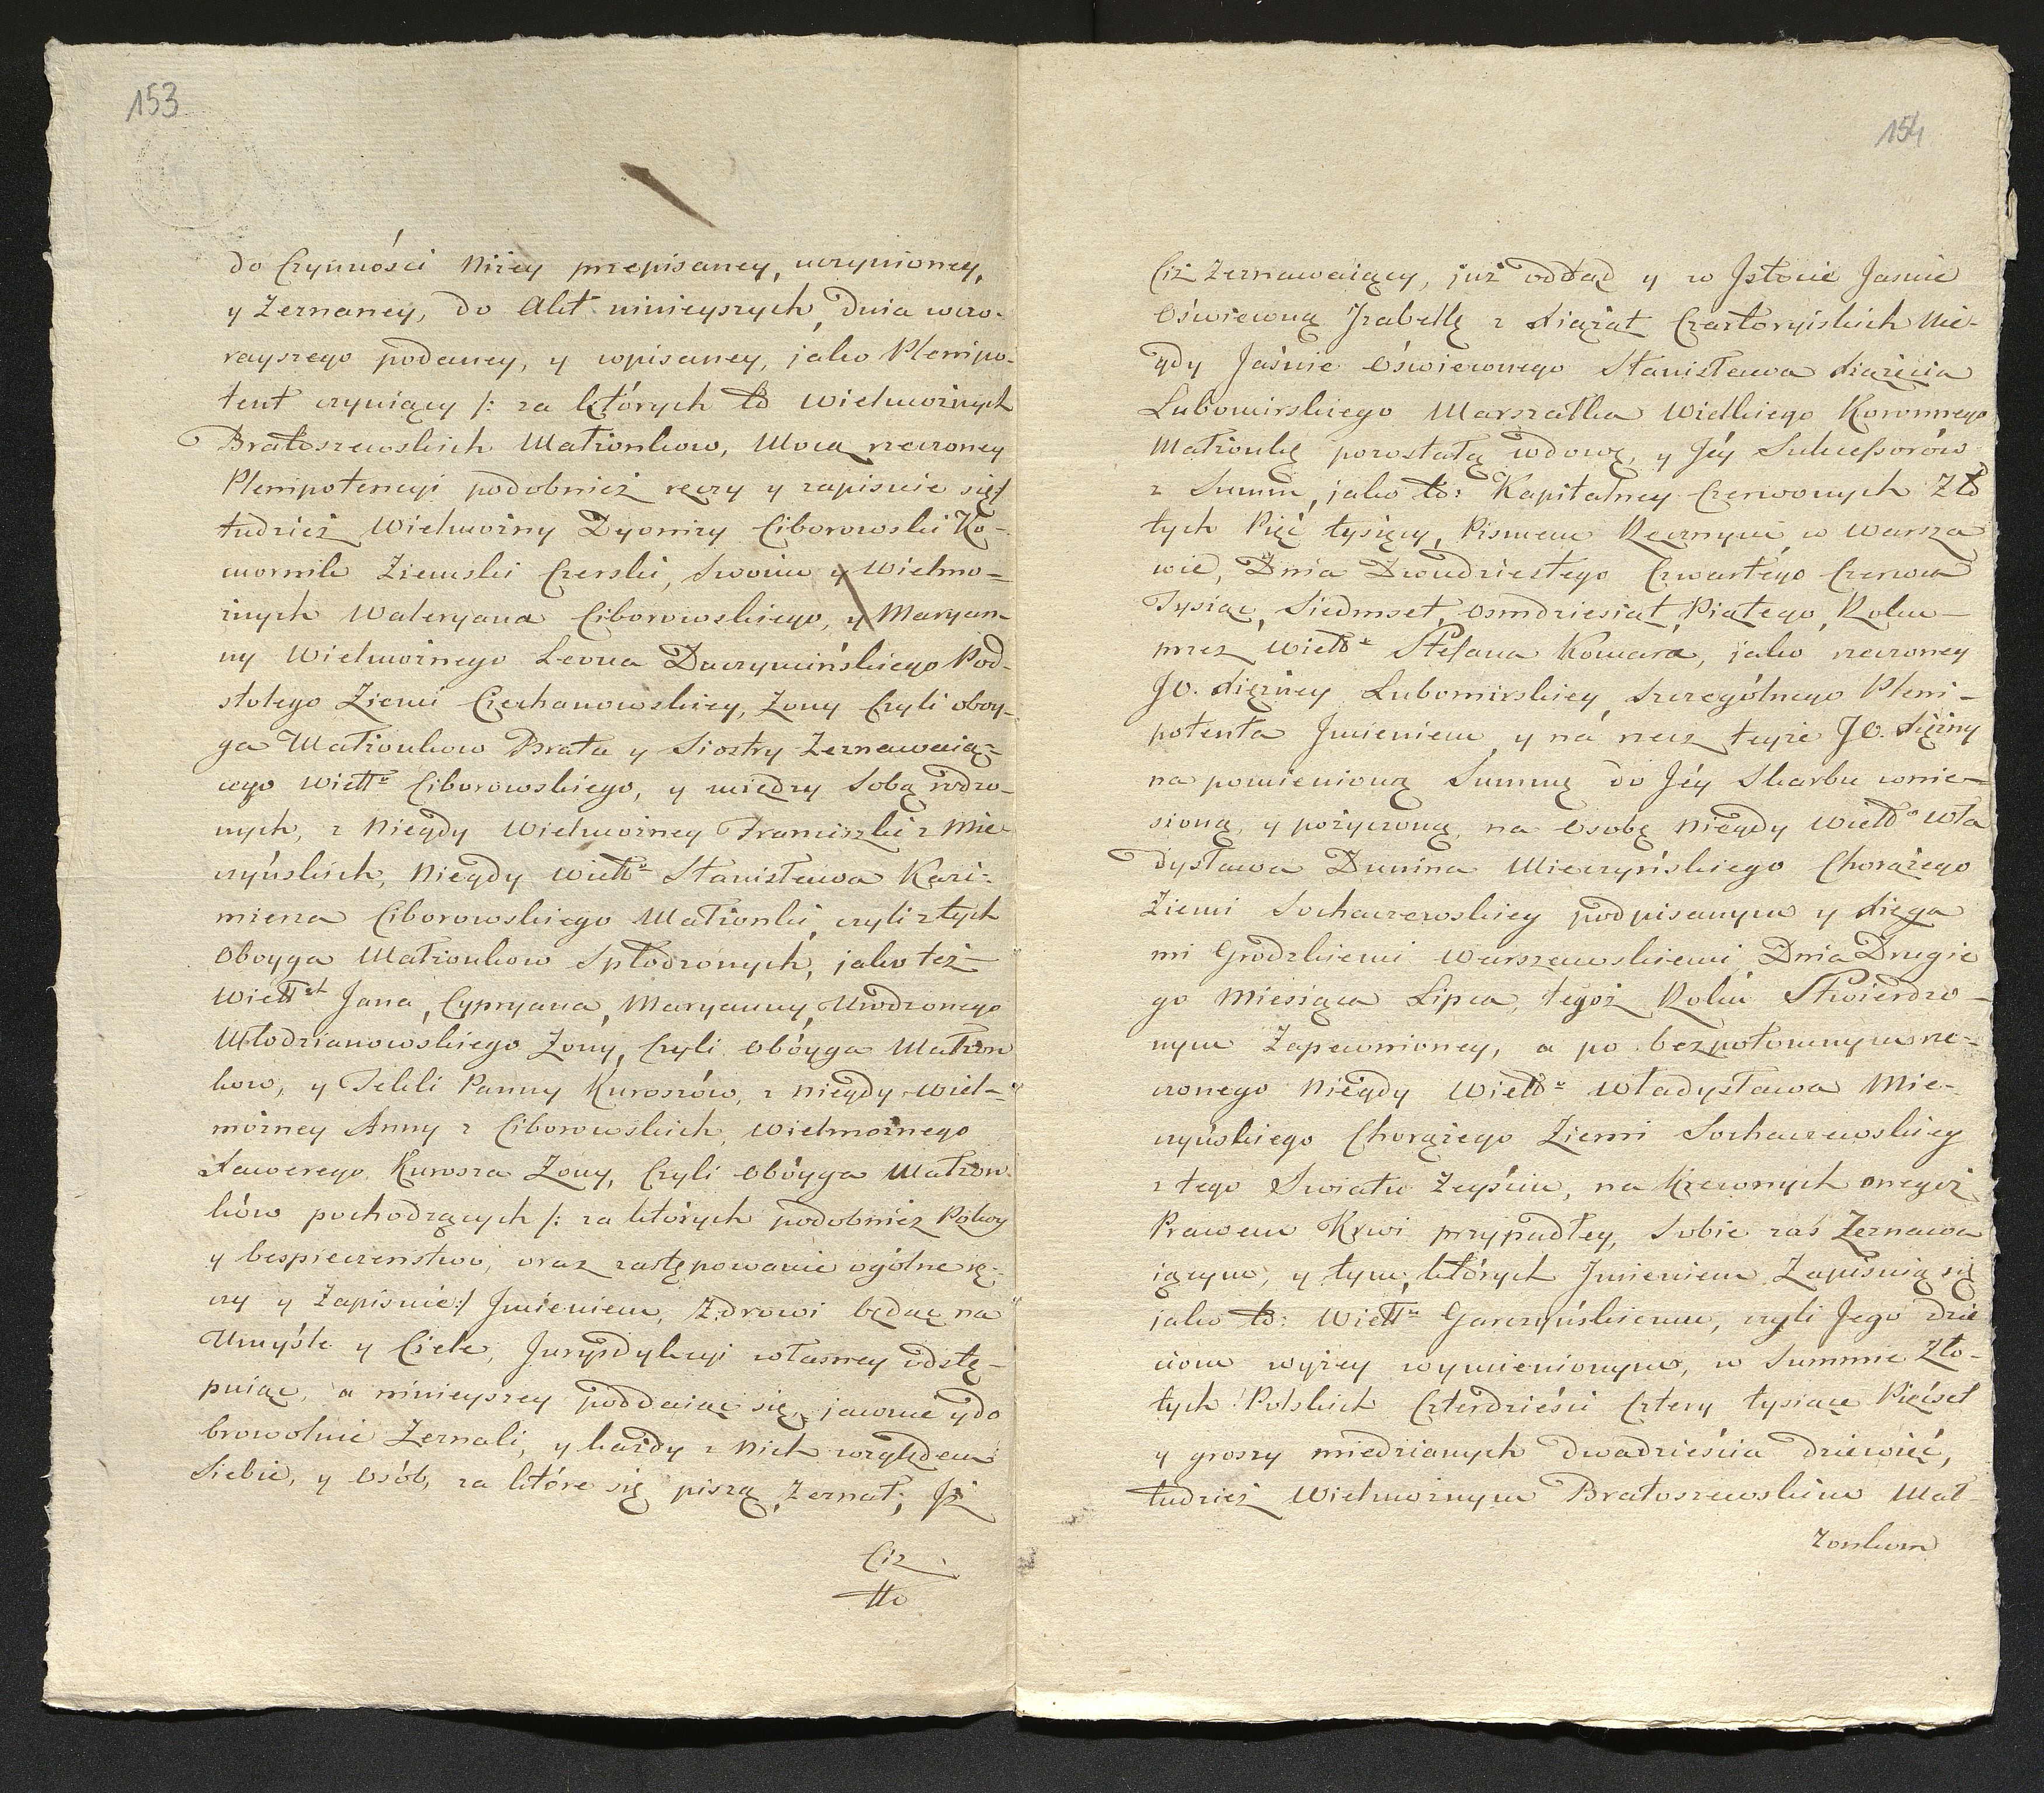 153
do Czynności niżey przepisaney, uczynioney,
y Zeznaney, do Akt ninieyszych Dnia wczo-
rayszego podaney, y wpisaney, jako Plenipo-
tent czyniący /: za których to Wielmożnych
Bratoszewskich Małżonkow, Mocą rzeczoney
Plenipotencyi podobnież ręczy y zapisuie się:/
tudzież Wielmożny Dyonizy Ciborowski Ko-
mornik Ziemski Czerski, Swoim y Wielmo-
żnych Waleryana Ciborowskiego, y Maryan-
ny Wielmożnego Leona Duczymińskiego Pod-
stolego Ziemi Ciechanowskiey, Żony Czyli oboy-
ga Małżonkow Brata y Siostry Zeznawaią-
cego Wielłgo Ciborowskiego, y między Sobą rodzo-
nych, z niegdy Wielmożney Franciszki z Mie-
czyńskich, niegdy Wiellgo Stanisława Kazi-
mierza Ciborowskiego Małżonki, czyli z tych
Oboyga Małżonkow Spłodzonych, jako też
Wiellch Jana, Cypryana, Maryanny, Urodzonego
Młodzianowskiego Żony, Czyli Obóyga Małżon
kow, y Tekli Panny Kuroszów, z niegdy Wiel-
możney Anny z Ciborowskich, Wielmożnego
Xawerego Kurosza Żony, Czyli Obóyga Małżon-
ków pochodzących /: za których podobnież Pokoy
y bespieczeństwo, oraz zastępowanie ogólne rę-
czy y Zapisuie:/ Jmieniem, Zdrowi będąc na
Umyśle y Ciele, Juryzdykcyi własney odstę-
puiąc, a ninieyszey poddaiąc się, jawnie y do
browolnie Zeznali, y każdy z nich względem
Siebie, y Osób, za które się piszą, Zeznał; Jż
Ciż
154
Ciż Zeznawaiący, już odtąd y w Jstocie Jaśnie
Oświeconą Jzabellę z Xiążąt Czartoryiskich Nie-
gdy Jaśnie Oświeconego Stanisława Xiążęcia
Lubomirskiego Marszałka Wielkiego Koronnego
Małżonkę pozostałą Wdowę, y Jéy Sukcessorów
z Summ, jako to: Kapitalney Czerwonych Zło
tych Pięć tysięcy, Pismem Ręcznym w Warsza
wie, Dnia Dwudziestego Czwartego Czerwca
Tysiąc Siedmset Osmdziesiąt Piątego Roku
przez Wiellgo Stefana Komara, jako rzeczoney
JO. Xiężney Lubomirskiey Szczególnego Pleni-
potenta Jmieniem y na rzecz teyże JO. Xiężny
na pomienioną Summę do Jéy Skarbu wnie-
sioną, y pożyczoną, na Osobę niegdy Wiellgo Wła
dysława Dunina Mieczyńskiego Chorążego
Ziemi Sochaczewskiey podpisanym y Xięga
mi Grodzkiemi Warszawskiemi Dnia Drugie
go Miesiąca Lipca, tegoż Roku Stwierdzo-
nym Zapewnioney, a po bezpotomnym rze-
czonego niegdy Wiellgo Władysława Mie-
czyńskiego Chorążego Ziemi Sochaczewskiey
z tego Świata Zeyściu, na Krewnych onegoż
Prawem Krwi przypadłey, Sobie zaś Zeznawa
iącym, y tym, których Jmieniem Zapisuią się
jako to: Wiellmu Garczyńskiemu, czyli Jego dzie
ciom wyżey wymienionym, w Summie Zło-
tych Polskich Czterdzieści Cztery tysiące Pięćset
y groszy miedzianych dwadzieścia dziewięć,
tudzież Wielmożnym Bratoszewskim Mał-
żonkom